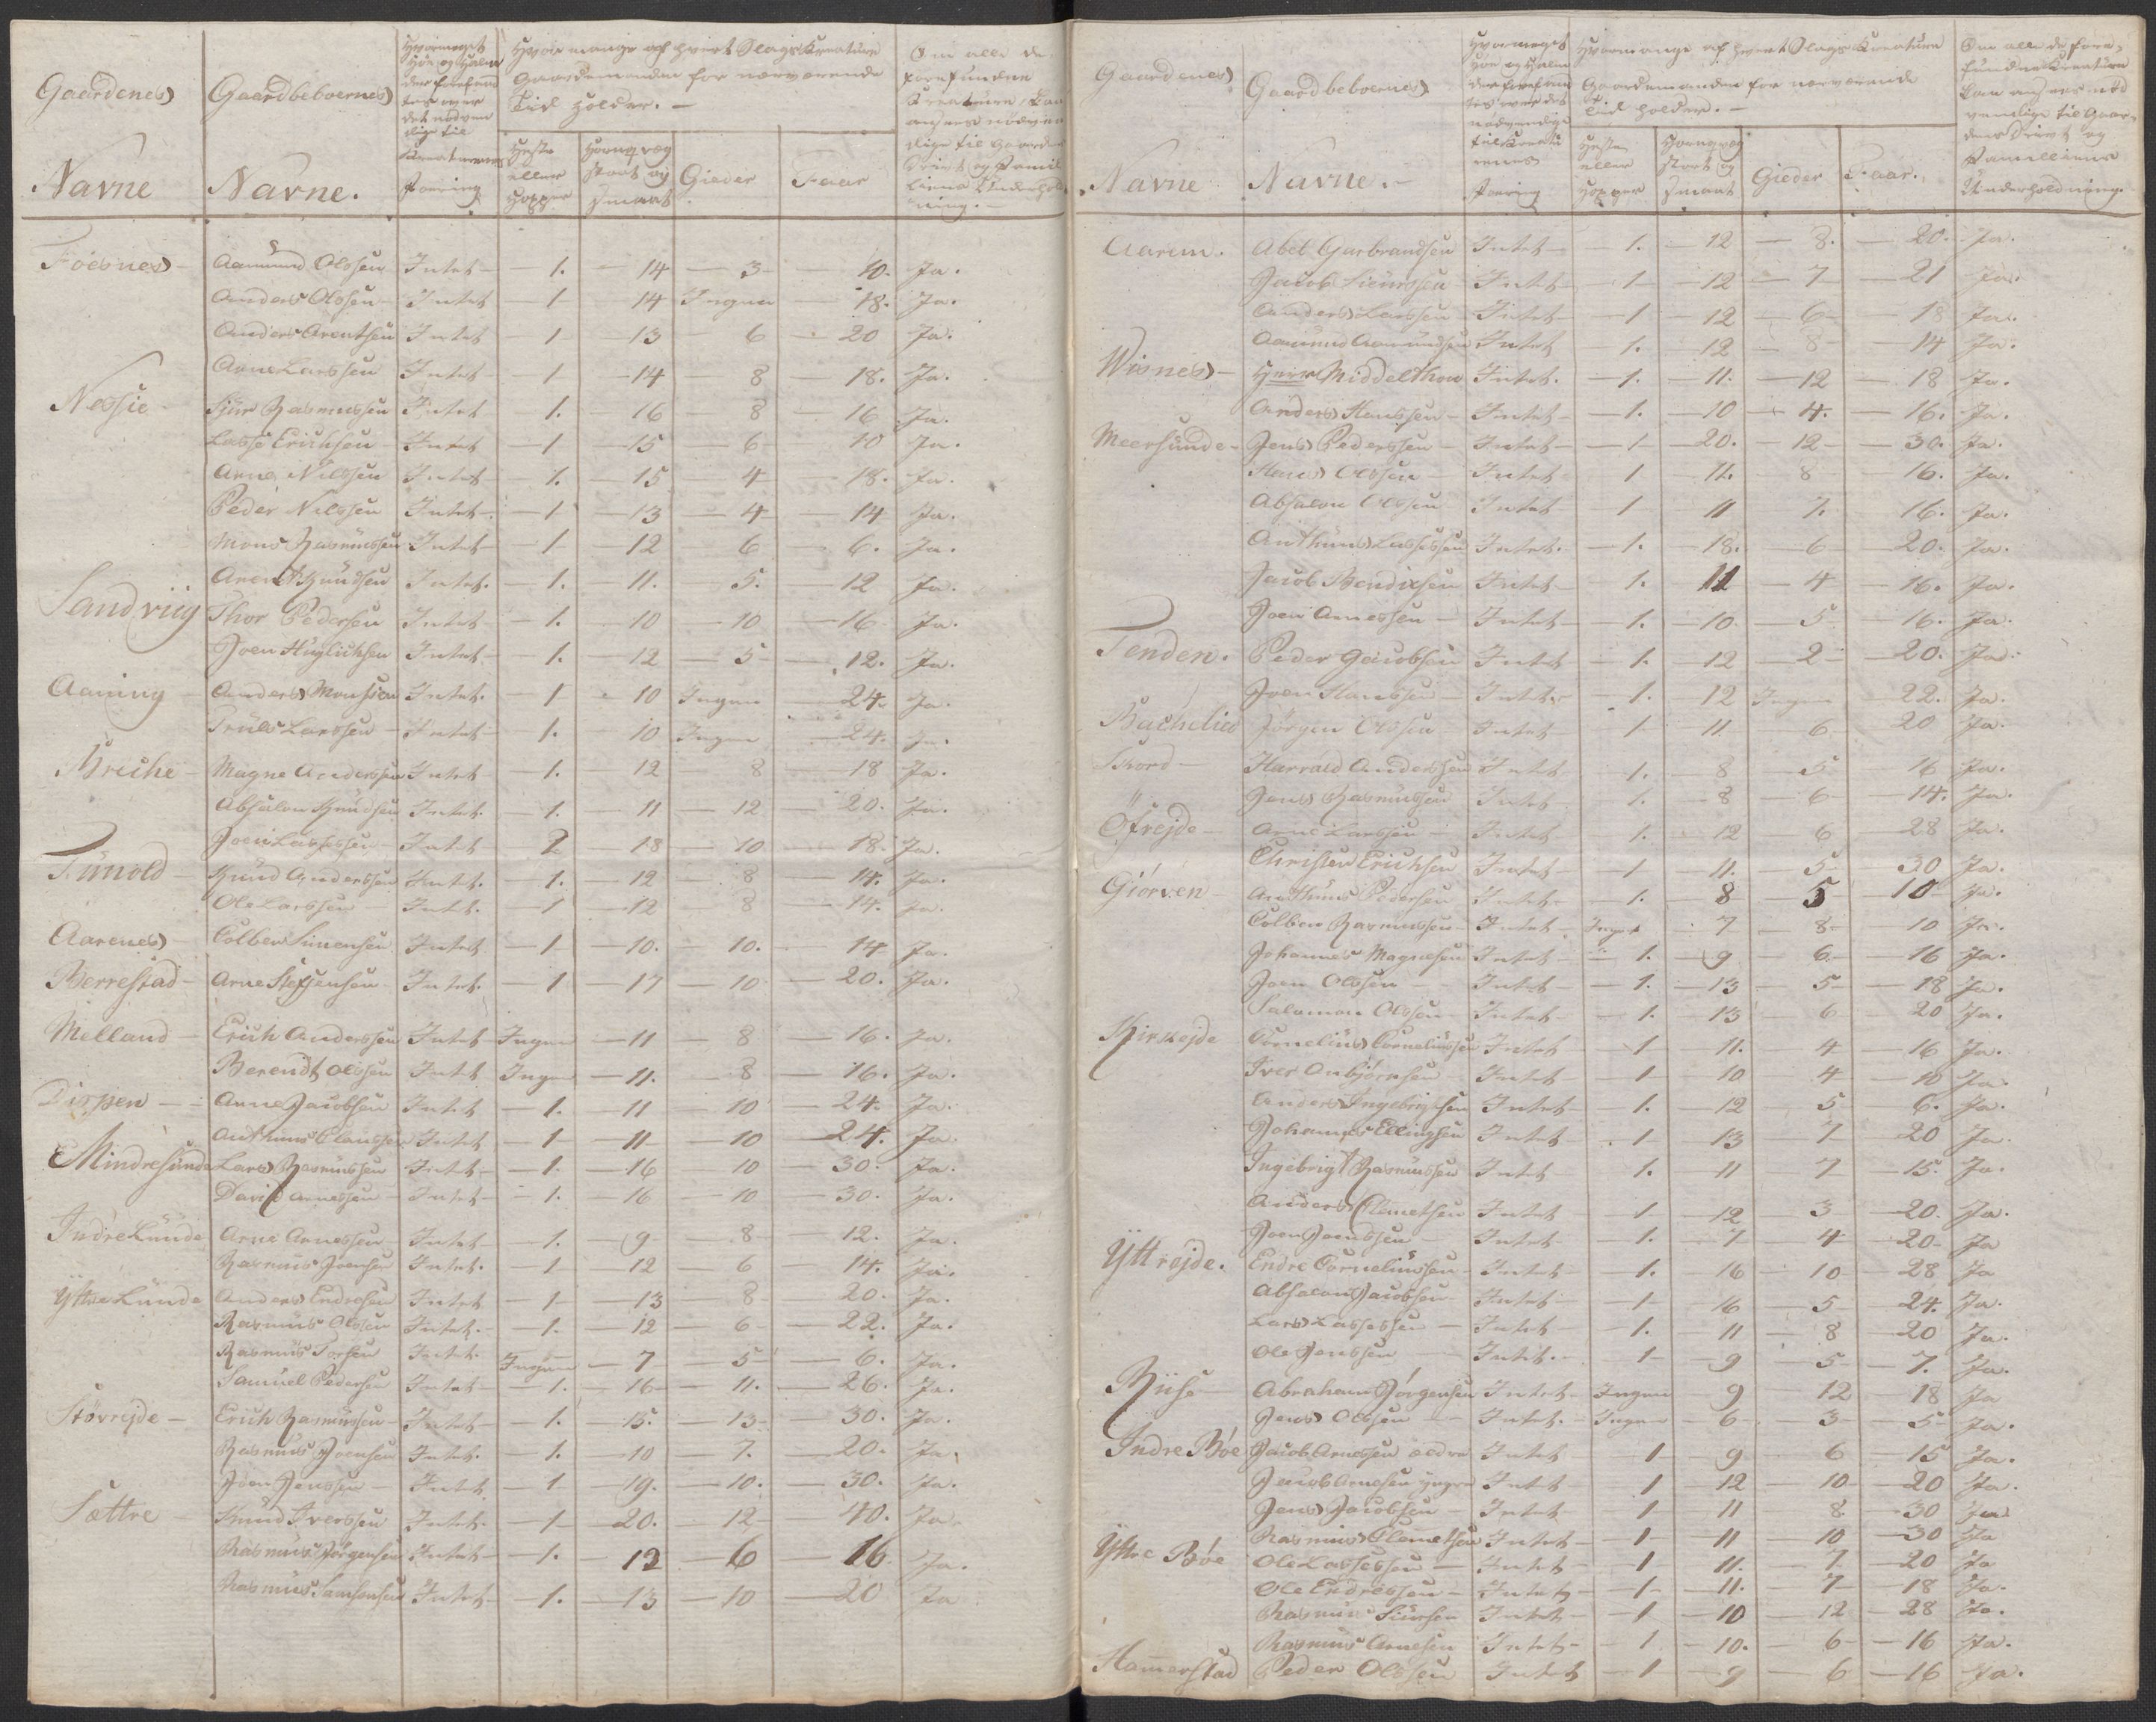 Gaardenes Navne | Gaardbeboernes Navne. | Hvormeget Høe og Halm der forefandtes over det nødvendige til Kreaturernes Foering | Hvor mange af hvert Slags Kreature Gaardemanden for nærværende Tid holder. – Heste eller Hopper | Hornqvæg stort og smaat | Gieder | Faar | Om alle de forefundne Kreature kan ansees nødvendige til Gaardens Drivt og Familiens Underholdning. –
Föesnes – Aamund Olssen Intet – 1. – 14 – 3 – 10. Ja.
Anders Olssen Intet – 1 – 14 Ingen – 18. Ja.
Anders Arenthsen Intet – 1 – 13 – 6 – 20 Ja.
Arne Larssen Intet – 1 – 14 – 8 – 18. Ja.
Nessie Siur Rasmussen Intet – 1. – 16 – 8 – 16 Ja.
Lasse Erichsen Intet – 1 – 15 – 6 – 10 Ja.
Arne Nilssen Intet – 1. – 15 – 4 – 18. Ja.
Peder Nilssen Intet – 1 – 13 – 4 – 14 Ja.
Mons Rasmussen Intet – 1 – 12 6 – 6. Ja.
Sandviig Arent Knudsen Intet. – 1. – 11. – 5. – 12 Ja.
Thor Pedersen Intet – 1. – 10 – 10 – 16 Ja.
Joen Huglichsen Intet – 1. – 12 – 5 – 12. Ja.
Aaning – Anders Monssen Intet. – 1 – 10 Ingen – 24. Ja.
Truls Larssen – Intet – 1. – 10 Ingen – 24. Ja.
Breche – Magne Anderssen Intet – 1. – 12 8 – 18 Ja.
Absalon Knudsen Intet. – 1. – 11 – 12 – 20. Ja.
Joen Lassessen Intet – 2 – 18 – 10 – 18. Ja.
Tunold – Knud Anderssen Intet. – 1. – 12 – 8 – 14. Ja.
Ole Larssen – Intet. – 1 – 12 – 8 – 14. Ja.
Aarenes – Colben Simensen Intet – 1 – 10. – 10. – 14 Ja.
Berrestad – Arne Steffensen Intet. – 1 – 17 – 10 – 20. Ja.
Melland – Erich Anderssen Intet Ingen – 11 – 8 – 16. Ja.
Berendt Olssen Intet Ingen – 11. – 8 – 16. Ja.
Dispen – – Arne Jacobsen Intet – 1. – 11 – 10 – 24. Ja.
Anthuns Claussen Intet – 1 – 11 – 10 – 24. Ja.
Mindresunde Lars Rasmussen Intet – 1. – 16 10 – 30. Ja.
David Arnessen – Intet – 1. – 16 – 10 – 30. Ja.
Indre Lunde Arne Arnessen Intet – 1. – 9 – 8 – 12. Ja.
Rasmus Joensen Intet. – 1 – 12 – 6 – 14. Ja.
Yttre Lunde Anders Endresen Intet – 1 – 13 – 8 – 20. Ja.
Rasmus Olssen Intet. – 1. – 12 – 6 – 22. Ja.
Rasmus Torssen Intet. Ingen – 7 – 5 – 6. Ja.
Samuel Pedersen Intet – 1. – 16 – 11. – 26. Ja.
Störrejde – Erich Rasmussen Intet – 1. – 15. – 13 – 30. Ja.
Rasmus Joensen Intet. – 1. – 10 – 7. – 20. Ja.
Joen Jenssen – Intet – 1 – 19. – 10. – 30. Ja.
Sættre – Knud Iverssen Intet. – 1 – 20. – 12 – 40. Ja.
Rasmus Jørgensen Intet – 1. – 12 – 6 – 16 Ja.
Rasmus Samsonsen Intet – 1. – 13 – 10 – 20 Ja
Gaardenes Navne | Gaardbeboernes Navne. – | Hvormeget Høe og Halm der forefandtes over det nødvendige til Kreaturenes Foering | Hvormange af hvert Slags Kreature Gaardemanden for nærværende Tid holder. – Heste eller Hopper | Hornqvæg stort og smaat | Gieder | Faar. | Om alle de forefundne Kreature kan ansees nødvendige til Gaardens Drivt og Familliens Underholdning. –
Aarem. Abel Garbrandsen Intet – 1. – 12 – 8. – 20. Ja.
Jacob Siurssen Intet – 1 – 12 – 7 – 21 Ja.
Anders Larssen Intet – 1 – 12 – 6 – 18 Ja.
Aamund Aamundsen Intet – 1. – 12 – 8 – 14 Ja.
Wisnes – Herr Middelthon Intet. – 1. – 11. – 12 – 18 Ja.
Anders Hanssen – Intet – 1. – 10 – 4. – 16. Ja.
Meersunde – Jens Pederssen – Intet – 1 – 20. – 12 – 30. Ja.
Hans Olssen – Intet 1 – 11. 8 – 16. Ja.
Absalon Olssen Intet – 1 11 7. – 16. Ja.
Anthuns Lassessen Intet. – 1. – 18. – 6 – 20. Ja.
Jacob Bendixsen Intet – 1. – 11 – 4 – 16. Ja.
Joen Arnessen – Intet – 1. – 10 – 5 – 16. Ja.
Tenden. Peder Jacobsen Intet – 1. – 12 – 2 – 20. Ja.
Joen Hanssen – Intet – 1. – 12 Ingen – 22. Ja.
Bachelia Jørgen Olssen – Intet – 1 – 11 – 6 20 Ja.
Skord – Harrald Anderssen Intet 1. – 8 – 5 16 Ja.
Jens Rasmussen Intet – 1. – 8 – 6 – 14. Ja.
Öfrejde – Arne Larssen – Intet – 1. – 12 6 – 28 Ja.
Christen Erichsen Intet – 1 – 11. – 5 – 30 Ja.
Giørven – Anthuns Pedersen Intet – 1. – 8 5 – 10 Ja.
Colben Rasmussen Intet Ingen – 7 – 8 – 10 Ja.
Johannes Magnesen Intet – 1. – 9 – 6 – 16 Ja.
Joen Olssen – Intet – 1. – 13 – 5 – 18 Ja.
Salamon Olssen Intet – 1. – 13 – 6 – 20 Ja.
Kirkejde Cornelius Corneliussen Intet – 1 – 11. – 4 – 16 Ja.
Iver Anbjørnsen Intet – 1 – 10 4 – 10 Ja.
Anders Ingebrigtsen Intet – 1. – 12 – 5 – 6. Ja.
Johannes Ellingsen Intet – 1 – 13 – 7 – 20 Ja.
Ingebrigt Rasmussen Intet – 1. 11 7 – 15. Ja.
Anders Clemethsen Intet – 1 – 12 3 – 20. Ja.
Joen Joenssen – Intet – 1. – 7 – 4 – 20 Ja
Yttrejde. Endre Corneliussen Intet – 1. – 16 – 10 – 28 Ja
Absalon Jacobsen Intet – 1 – 16 – 5 – 24. Ja.
Lars Lassessen – Intet – 1. – 11 – 8 – 20 Ja.
Ole Jenssen – Intet. – 1 – 9 – 5 – 7. Ja.
Riise – Abraham Jörgensen Intet – Ingen – 9 12 18 Ja
Jens Olssen – Intet. – Ingen – 6 – 3 – 5 Ja.
Indre Bøe Jacob Arnessen ældre Intet – 1 – 9 – 6 – 15 Ja.
Jacob Arnesen yngre Intet – 1 – 12 – 10 – 20 Ja.
Jens Jacobsen – Intet – 1 – 11 – 8 – 30 Ja
Rasmus Clemethsen Intet – 1 – 11 – 10 – 30 Ja
Yttre Bøe Ole Lassessen – Intet – 1 – 11. – 7 – 20 Ja
Ole Endressen – Intet – 1 – 11. – 7 – 18 Ja.
Rasmus Siursen Intet – 1 – 10 – 12 – 28 Ja.
Rasmus Arnesen Intet – 1 – 10. – 6 – 16 Ja.
Hamerstad Peder Olssen Intet – 1 – 9 – 6 – 16 Ja.